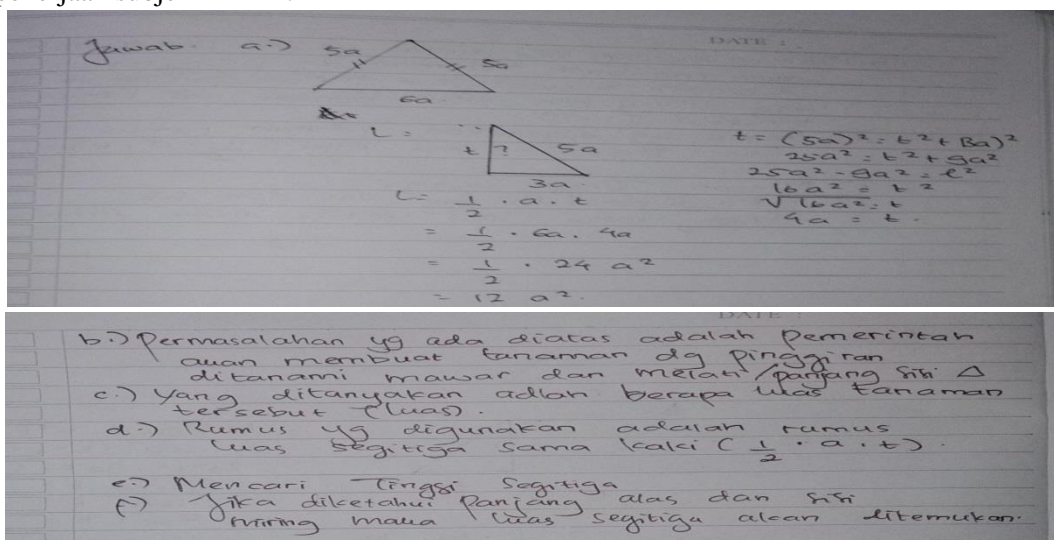 DATE :
Jawab. a.) 5a 5a
6a
L =
t ? 5a
3a
t = (5a)² = t² + (3a)²
25a² = t² + 9a²
25a² - 9a² = t²
16a² = t²
√16a² = t
4a = t.
L = 1/2 . a . t
= 1/2 . 6a . 4a
= 1/2 . 24 a²
= 12 a².
DATE
b.) Permasalahan yg ada diatas adalah Pemerintah
akan membuat tanaman dg pinggiran
ditanami mawar dan melati / panjang sisi △
c.) Yang ditanyakan adlah berapa luas tanaman
tersebut (luas).
d.) Rumus yg digunakan adalah rumus
luas segitiga sama kaki (1/2 . a . t).
e.) Mencari Tinggi Segitiga
f.) Jika diketahui panjang alas dan sisi
miring maka luas segitiga akan ditemukan.